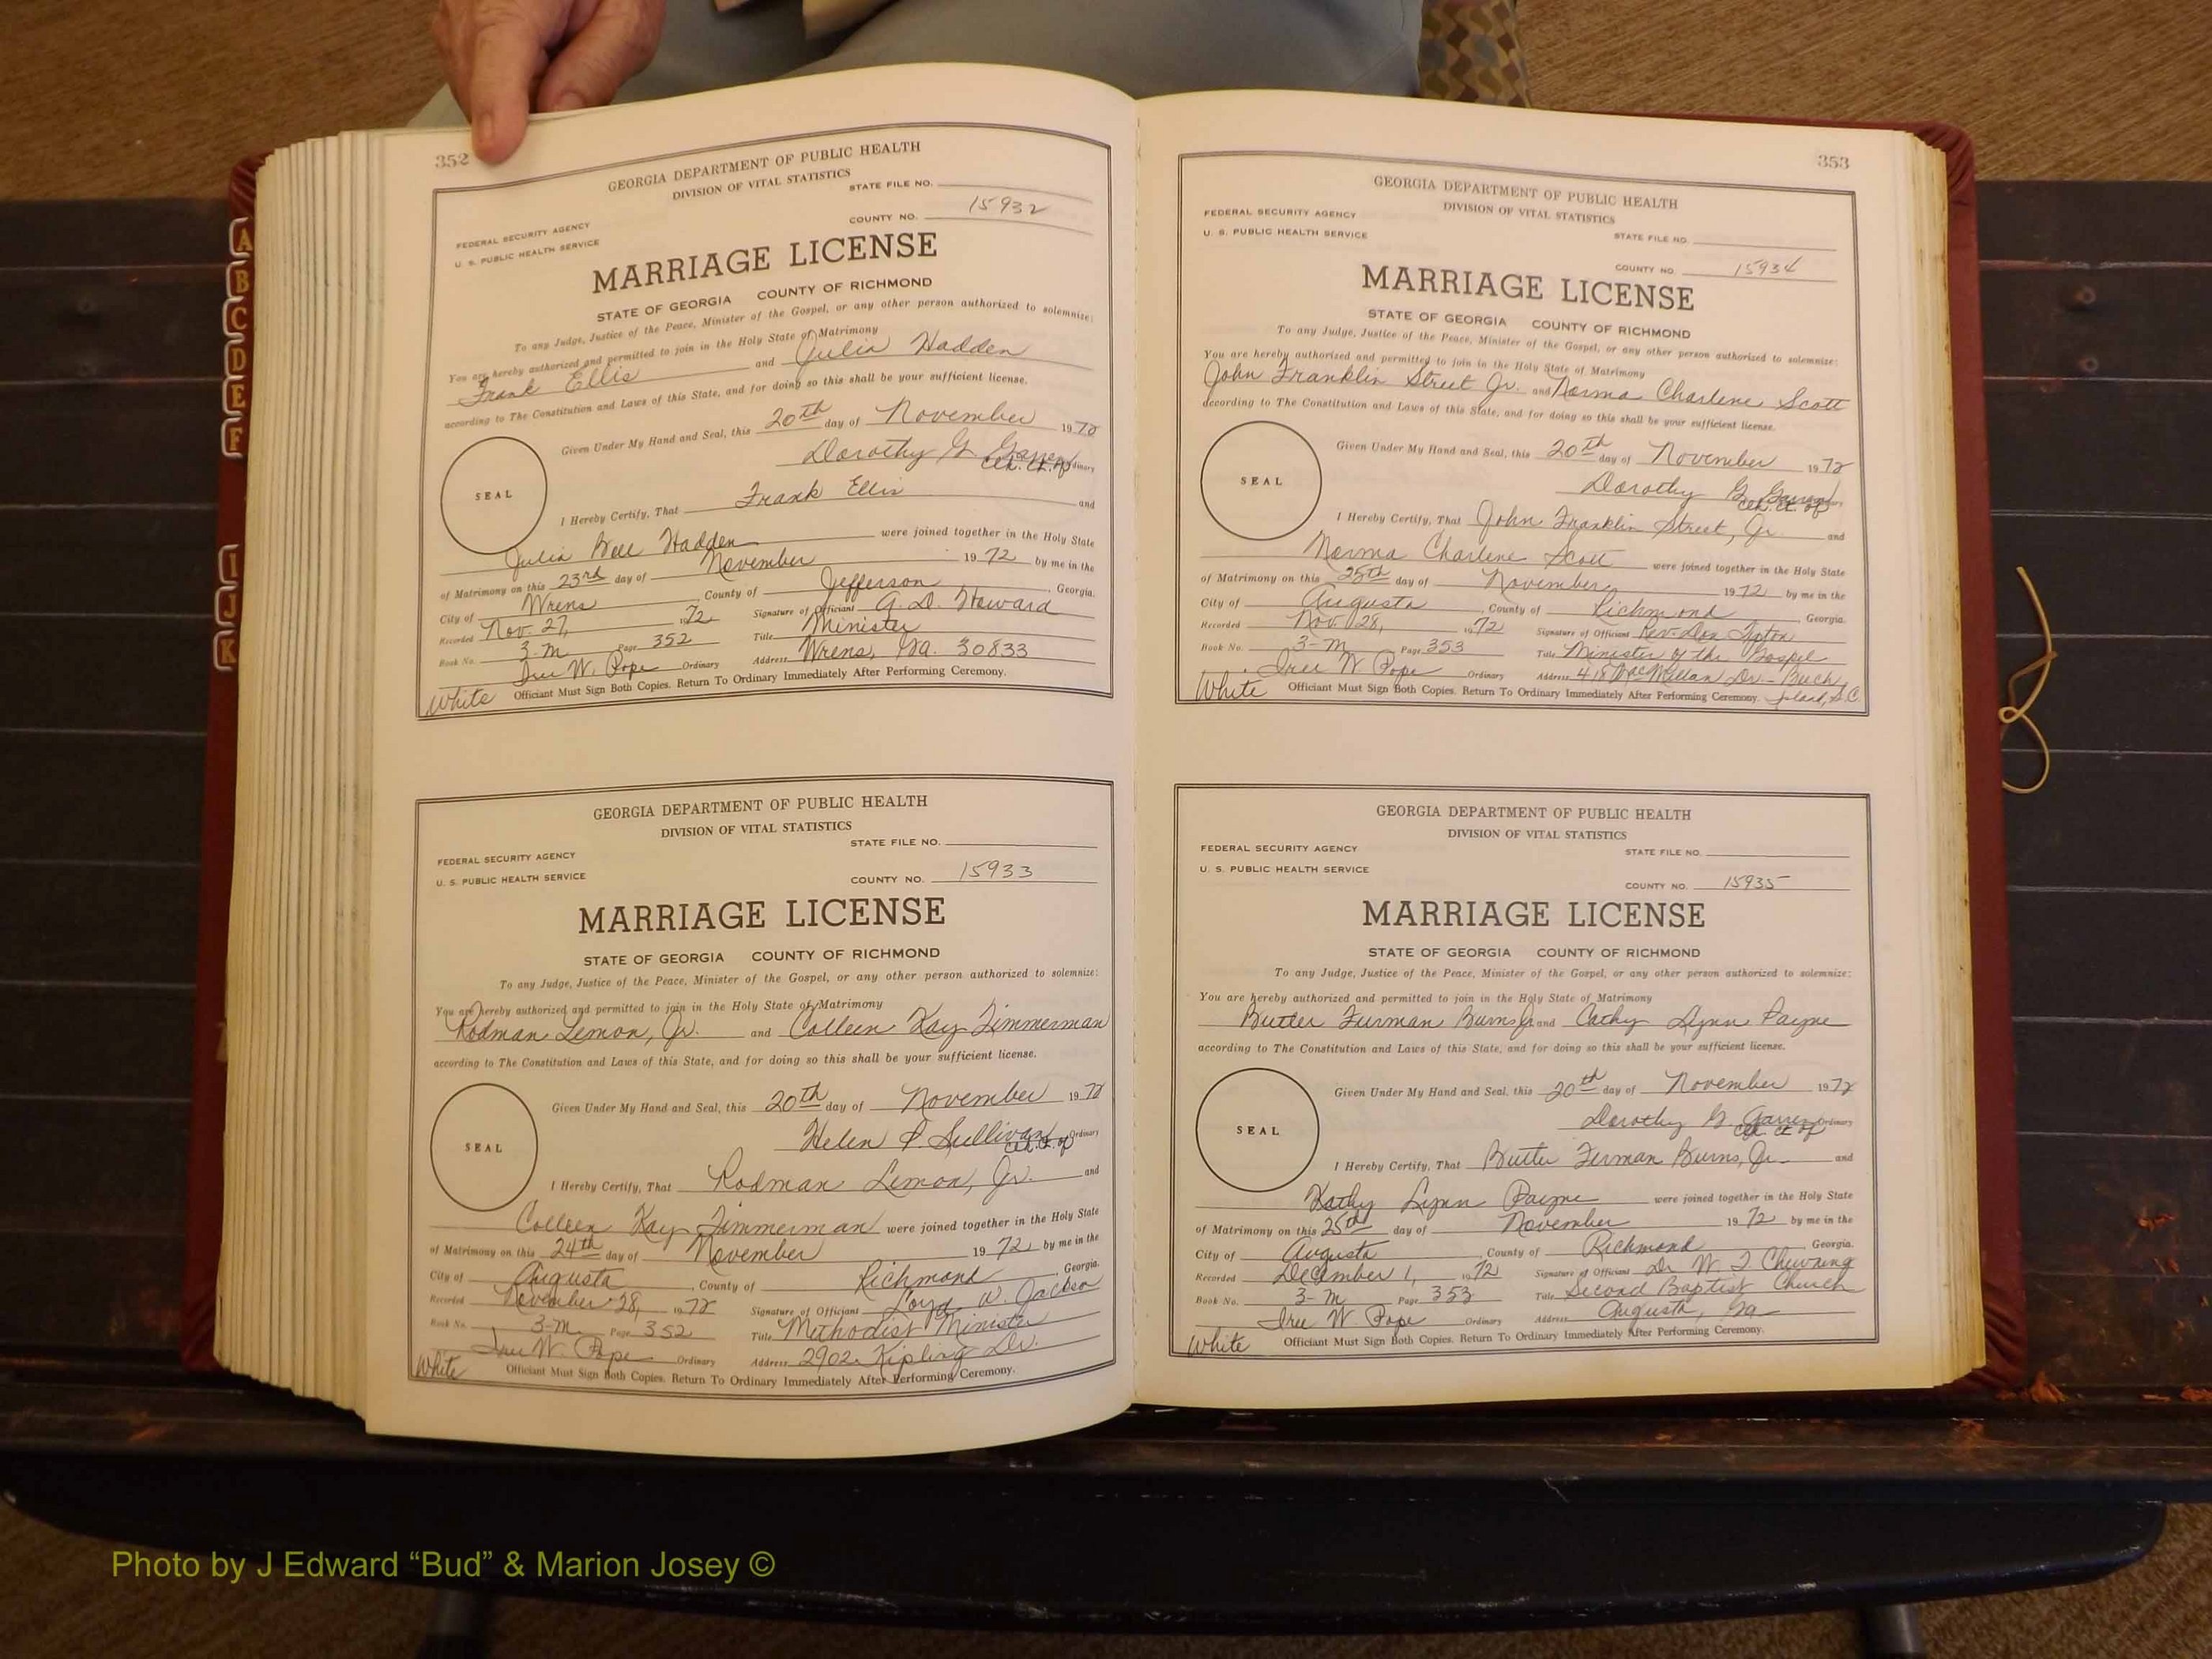 352
GEORGIA DEPARTMENT OF PUBLIC HEALTH
DIVISION OF VITAL STATISTICS
STATE FILE NO.
COUNTY NO. 15932
FEDERAL SECURITY AGENCY
U. S. PUBLIC HEALTH SERVICE
MARRIAGE LICENSE
STATE OF GEORGIA COUNTY OF RICHMOND
To any Judge, Justice of the Peace, Minister of the Gospel, or any other person authorized to solemnize:
You are hereby authorized and permitted to join in the Holy State of Matrimony
Frank Ellis and Julia Hadden
according to The Constitution and Laws of this State, and for doing so this shall be your sufficient license.
Given Under My Hand and Seal, this 20th day of November 1972
Dorothy G. Ordinary
SEAL
I Hereby Certify, That Frank Ellis and
Julia Bell Hadden were joined together in the Holy State
of Matrimony on this 23rd day of November 1972 by me in the
City of Wrens, County of Jefferson, Georgia.
Recorded Nov. 27, 1972 Signature of Officiant G. D. Howard
Book No. 3-M Page 352 Title Minister
W. Pope Ordinary Address Wrens, Ga. 30833
White Officiant Must Sign Both Copies. Return To Ordinary Immediately After Performing Ceremony.
GEORGIA DEPARTMENT OF PUBLIC HEALTH
DIVISION OF VITAL STATISTICS
STATE FILE NO.
FEDERAL SECURITY AGENCY
U. S. PUBLIC HEALTH SERVICE
COUNTY NO. 15933
MARRIAGE LICENSE
STATE OF GEORGIA COUNTY OF RICHMOND
To any Judge, Justice of the Peace, Minister of the Gospel, or any other person authorized to solemnize:
You are hereby authorized and permitted to join in the Holy State of Matrimony
Rodman Lemon, Jr. and Colleen Kay Timmerman
according to The Constitution and Laws of this State, and for doing so this shall be your sufficient license.
Given Under My Hand and Seal, this 20th day of November 1972
Helen P. Sullivan Ordinary
SEAL
I Hereby Certify, That Rodman Lemon, Jr. and
Colleen Kay Timmerman were joined together in the Holy State
of Matrimony on this 24th day of November 1972 by me in the
City of Augusta, County of Richmond, Georgia.
Recorded November 28, 1972 Signature of Officiant Loyd W. Jackson
Book No. 3-M Page 352 Title Methodist Minister
W. Pope Ordinary Address 2902 Kipling Dr.
White Officiant Must Sign Both Copies. Return To Ordinary Immediately After Performing Ceremony.
353
GEORGIA DEPARTMENT OF PUBLIC HEALTH
DIVISION OF VITAL STATISTICS
FEDERAL SECURITY AGENCY
U. S. PUBLIC HEALTH SERVICE
STATE FILE NO.
COUNTY NO. 15934
MARRIAGE LICENSE
STATE OF GEORGIA COUNTY OF RICHMOND
To any Judge, Justice of the Peace, Minister of the Gospel, or any other person authorized to solemnize:
You are hereby authorized and permitted to join in the Holy State of Matrimony
John Franklin Street Jr. and Norma Charlene Scott
according to The Constitution and Laws of this State, and for doing so this shall be your sufficient license.
Given Under My Hand and Seal, this 20th day of November 1972
Dorothy G.
SEAL
I Hereby Certify, That John Franklin Street, Jr. and
Norma Charlene Scott were joined together in the Holy State
of Matrimony on this 25th day of November 1972 by me in the
City of Augusta, County of Richmond, Georgia.
Recorded Nov. 28, 1972 Signature of Officiant Rev. Don Tipton
Book No. 3-M Page 353 Title Minister of the Gospel
W Pope Ordinary Address 418 MacMillan Dr.- Beech
White Officiant Must Sign Both Copies. Return To Ordinary Immediately After Performing Ceremony. Island, S.C.
GEORGIA DEPARTMENT OF PUBLIC HEALTH
DIVISION OF VITAL STATISTICS
FEDERAL SECURITY AGENCY
STATE FILE NO.
U. S. PUBLIC HEALTH SERVICE
COUNTY NO. 15935
MARRIAGE LICENSE
STATE OF GEORGIA COUNTY OF RICHMOND
To any Judge, Justice of the Peace, Minister of the Gospel, or any other person authorized to solemnize:
You are hereby authorized and permitted to join in the Holy State of Matrimony
Butler Furman Burns Jr and Cathy Lynn Payne
according to The Constitution and Laws of this State, and for doing so this shall be your sufficient license.
Given Under My Hand and Seal, this 20th day of November 1972
Dorothy G. Ordinary
SEAL
I Hereby Certify, That Butler Ferman Burns, Jr. and
Kathy Lynn Payne were joined together in the Holy State
of Matrimony on this 25th day of November 1972 by me in the
City of Augusta, County of Richmond, Georgia.
Recorded December 1, 1972 Signature of Officiant Dr W. J.
Book No. 3-M Page 353 Title Second Baptist Church
W Pope Ordinary Address Augusta, Ga
White Officiant Must Sign Both Copies. Return To Ordinary Immediately After Performing Ceremony.
A
B
C
D
E
F
I
J
K
Photo by J Edward “Bud” & Marion Josey ©